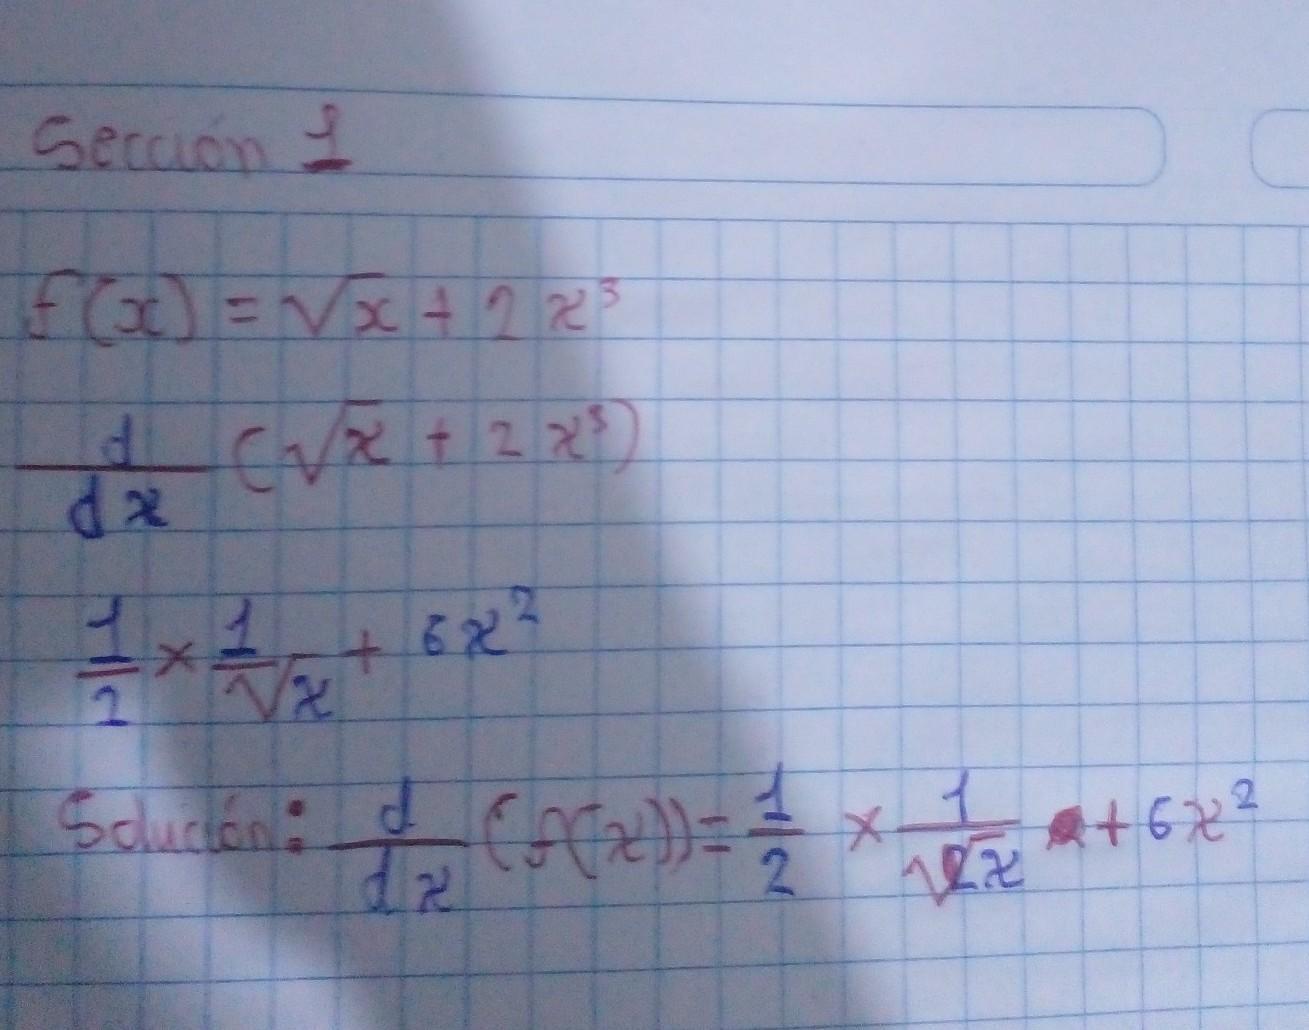 Sección 1
f(x) = √x + 2x³
d/dx (√x + 2x³)
1/2 × 1/√x + 6x²
Solución: d/dx (f(x)) = 1/2 × 1/√x + 6x²